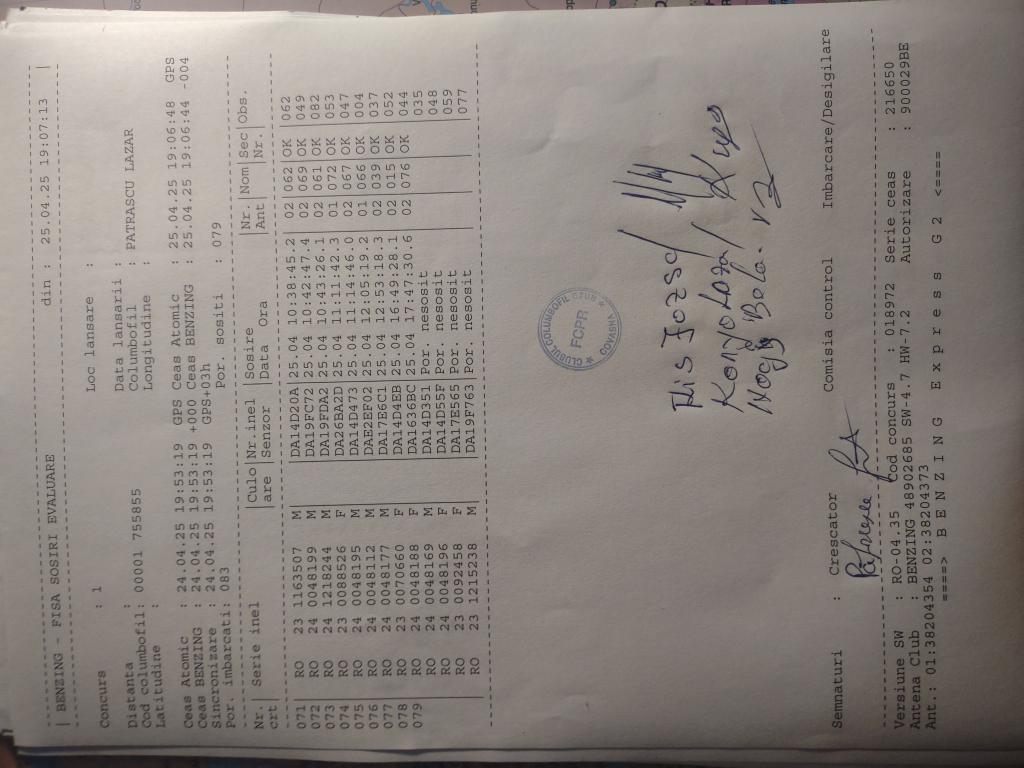 | BENZING - FISA SOSIRI EVALUARE din : 25.04.25 19:07:13 |
Concurs : 1 Loc lansare :
Distanta : Data lansarii :
Cod columbofil: 00001 755855 Columbofil : PATRASCU LAZAR
Latitudine : Longitudine :
Ceas Atomic : 24.04.25 19:53:19 GPS Ceas Atomic : 25.04.25 19:06:48 GPS
Ceas BENZING : 24.04.25 19:53:19 +000 Ceas BENZING : 25.04.25 19:06:44 -004
Sincronizare : 24.04.25 19:53:19 GPS+03h
Por. imbarcati: 083 Por. sositi : 079
Nr. Serie inel |Culo|Nr.inel |Sosire |Nr |Nom|Sec|Obs.
crt |are |Senzor |Data Ora |Ant | |Nr.|
071 RO 23 1163507 M |DA14D20A|25.04 10:38:45.2 02 |062|OK |062
072 RO 24 0048199 M |DA19FC72|25.04 10:42:47.4 02 |069|OK |049
073 RO 24 1218244 M |DA19FDA2|25.04 10:43:26.1 02 |061|OK |082
074 RO 23 0088526 F |DA26BA2D|25.04 11:11:42.3 01 |072|OK |053
075 RO 24 0048195 M |DA14D473|25.04 11:14:46.0 02 |067|OK |047
076 RO 24 0048112 M |DAE2EF02|25.04 12:05:19.2 01 |066|OK |004
077 RO 24 0048177 M |DA17E6C1|25.04 12:53:18.3 02 |039|OK |037
078 RO 23 0070660 F |DA14D4EB|25.04 16:49:28.1 02 |015|OK |052
079 RO 24 0048188 F |DA1636BC|25.04 17:47:30.6 02 |076|OK |044
RO 24 0048169 M |DA14D351|Por. nesosit |035
RO 24 0048196 F |DA14D55F|Por. nesosit |048
RO 23 0092458 F |DA17E565|Por. nesosit |059
RO 23 1215238 M |DA19F763|Por. nesosit |077
CLUBUL COLUMBOFIL
FCPR
COVASNA
Semnaturi : Crescator Comisia control Imbarcare/Desigilare
Versiune SW : RO-04.35 Cod concurs : 018972 Serie ceas : 216650
Antena Club : BENZING 48902685 SW-4.7 HW-7.2 Autorizare : 900029BE
Ant.: 01:38204354 02:38204373
====> B E N Z I N G E x p r e s s G 2 <====